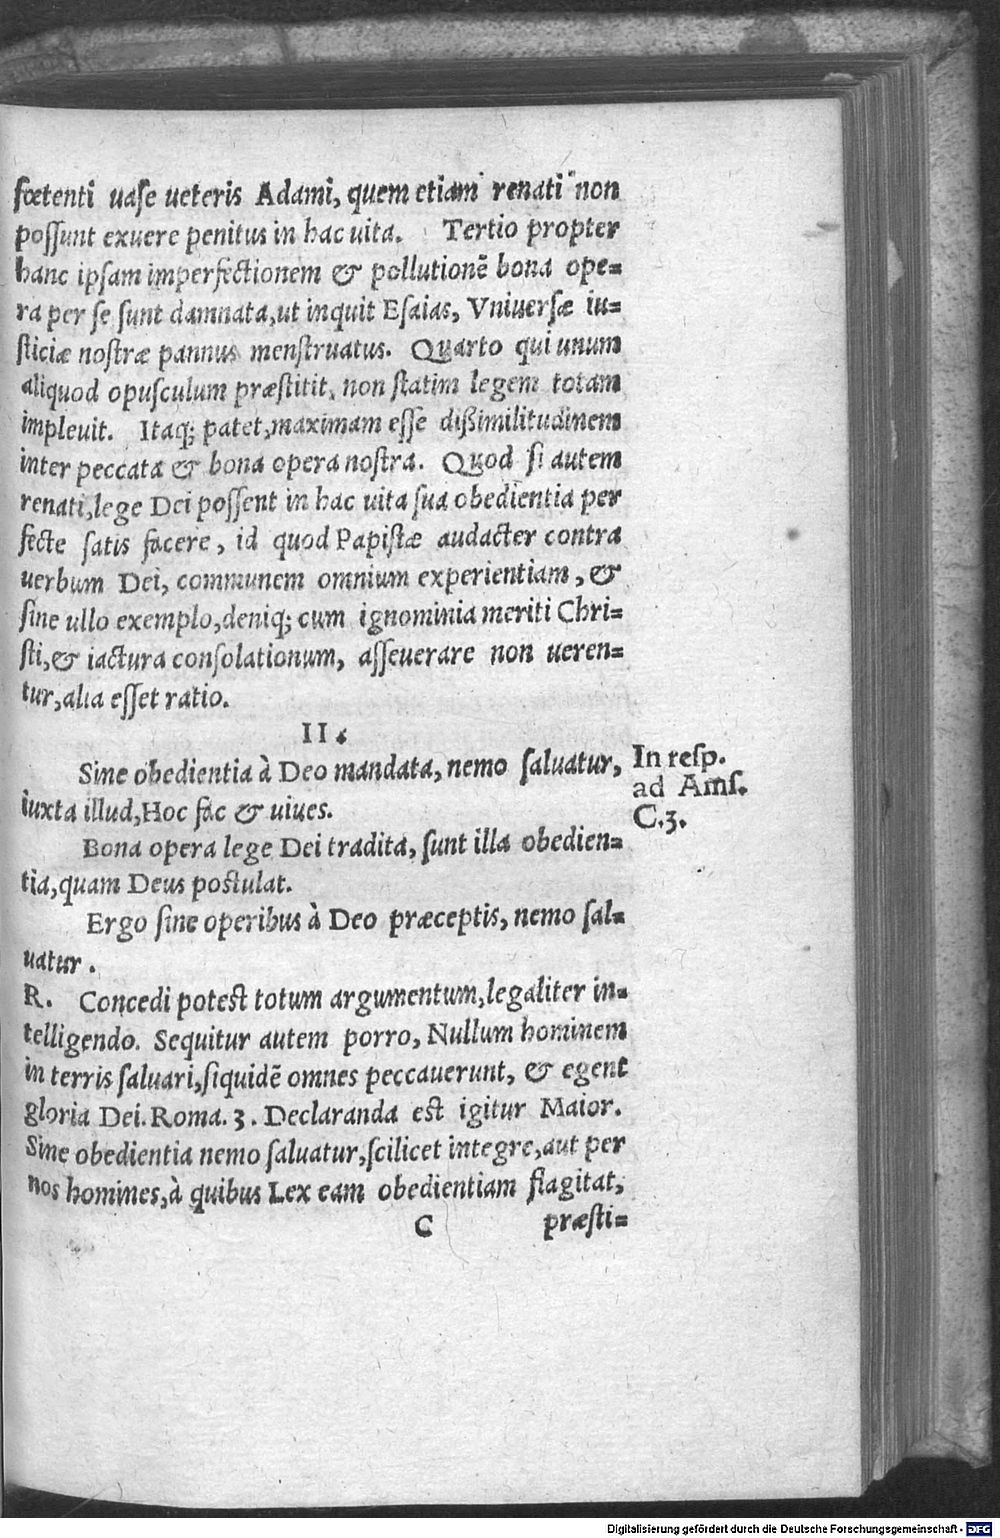 fœtenti uase ueteris Adami, quem etiam renati non
possunt exuere penitus in hac uita. Tertio propter
hanc ipsam imperfectionem & pollutionē bona ope=
ra per se sunt damnata, ut inquit Esaias, Vniuersæ iu=
sticiæ nostræ pannus menstruatus. Quarto qui unum
aliquod opusculum præstitit, non statim legem totam
impleuit. Itaq; patet, maximam esse dißimilitudinem
inter peccata & bona opera nostra. Quod si autem
renati, lege Dei possent in hac uita sua obedientia per
fecte satis facere, id quod Papistæ audacter contra
uerbum Dei, communem omnium experientiam, &
sine ullo exemplo, deniq; cum ignominia meriti Chri=
sti, & iactura consolationum, asseuerare non ueren=
tur, alia esset ratio.
II.
Sine obedientia à Deo mandata, nemo saluatur,
iuxta illud, Hoc fac & uiues.
In resp.
ad Ams.
C.3.
Bona opera lege Dei tradita, sunt illa obedien=
tia, quam Deus postulat.
Ergo sine operibus à Deo præceptis, nemo sal=
uatur.
R. Concedi potest totum argumentum, legaliter in=
telligendo. Sequitur autem porro, Nullum hominem
in terris saluari, siquidē omnes peccauerunt, & egent
gloria Dei. Roma. 3. Declaranda est igitur Maior.
Sine obedientia nemo saluatur, scilicet integre, aut per
nos homines, à quibus Lex eam obedientiam flagitat,
C præsti=
Digitalisierung gefördert durch die Deutsche Forschungsgemeinschaft - DFG